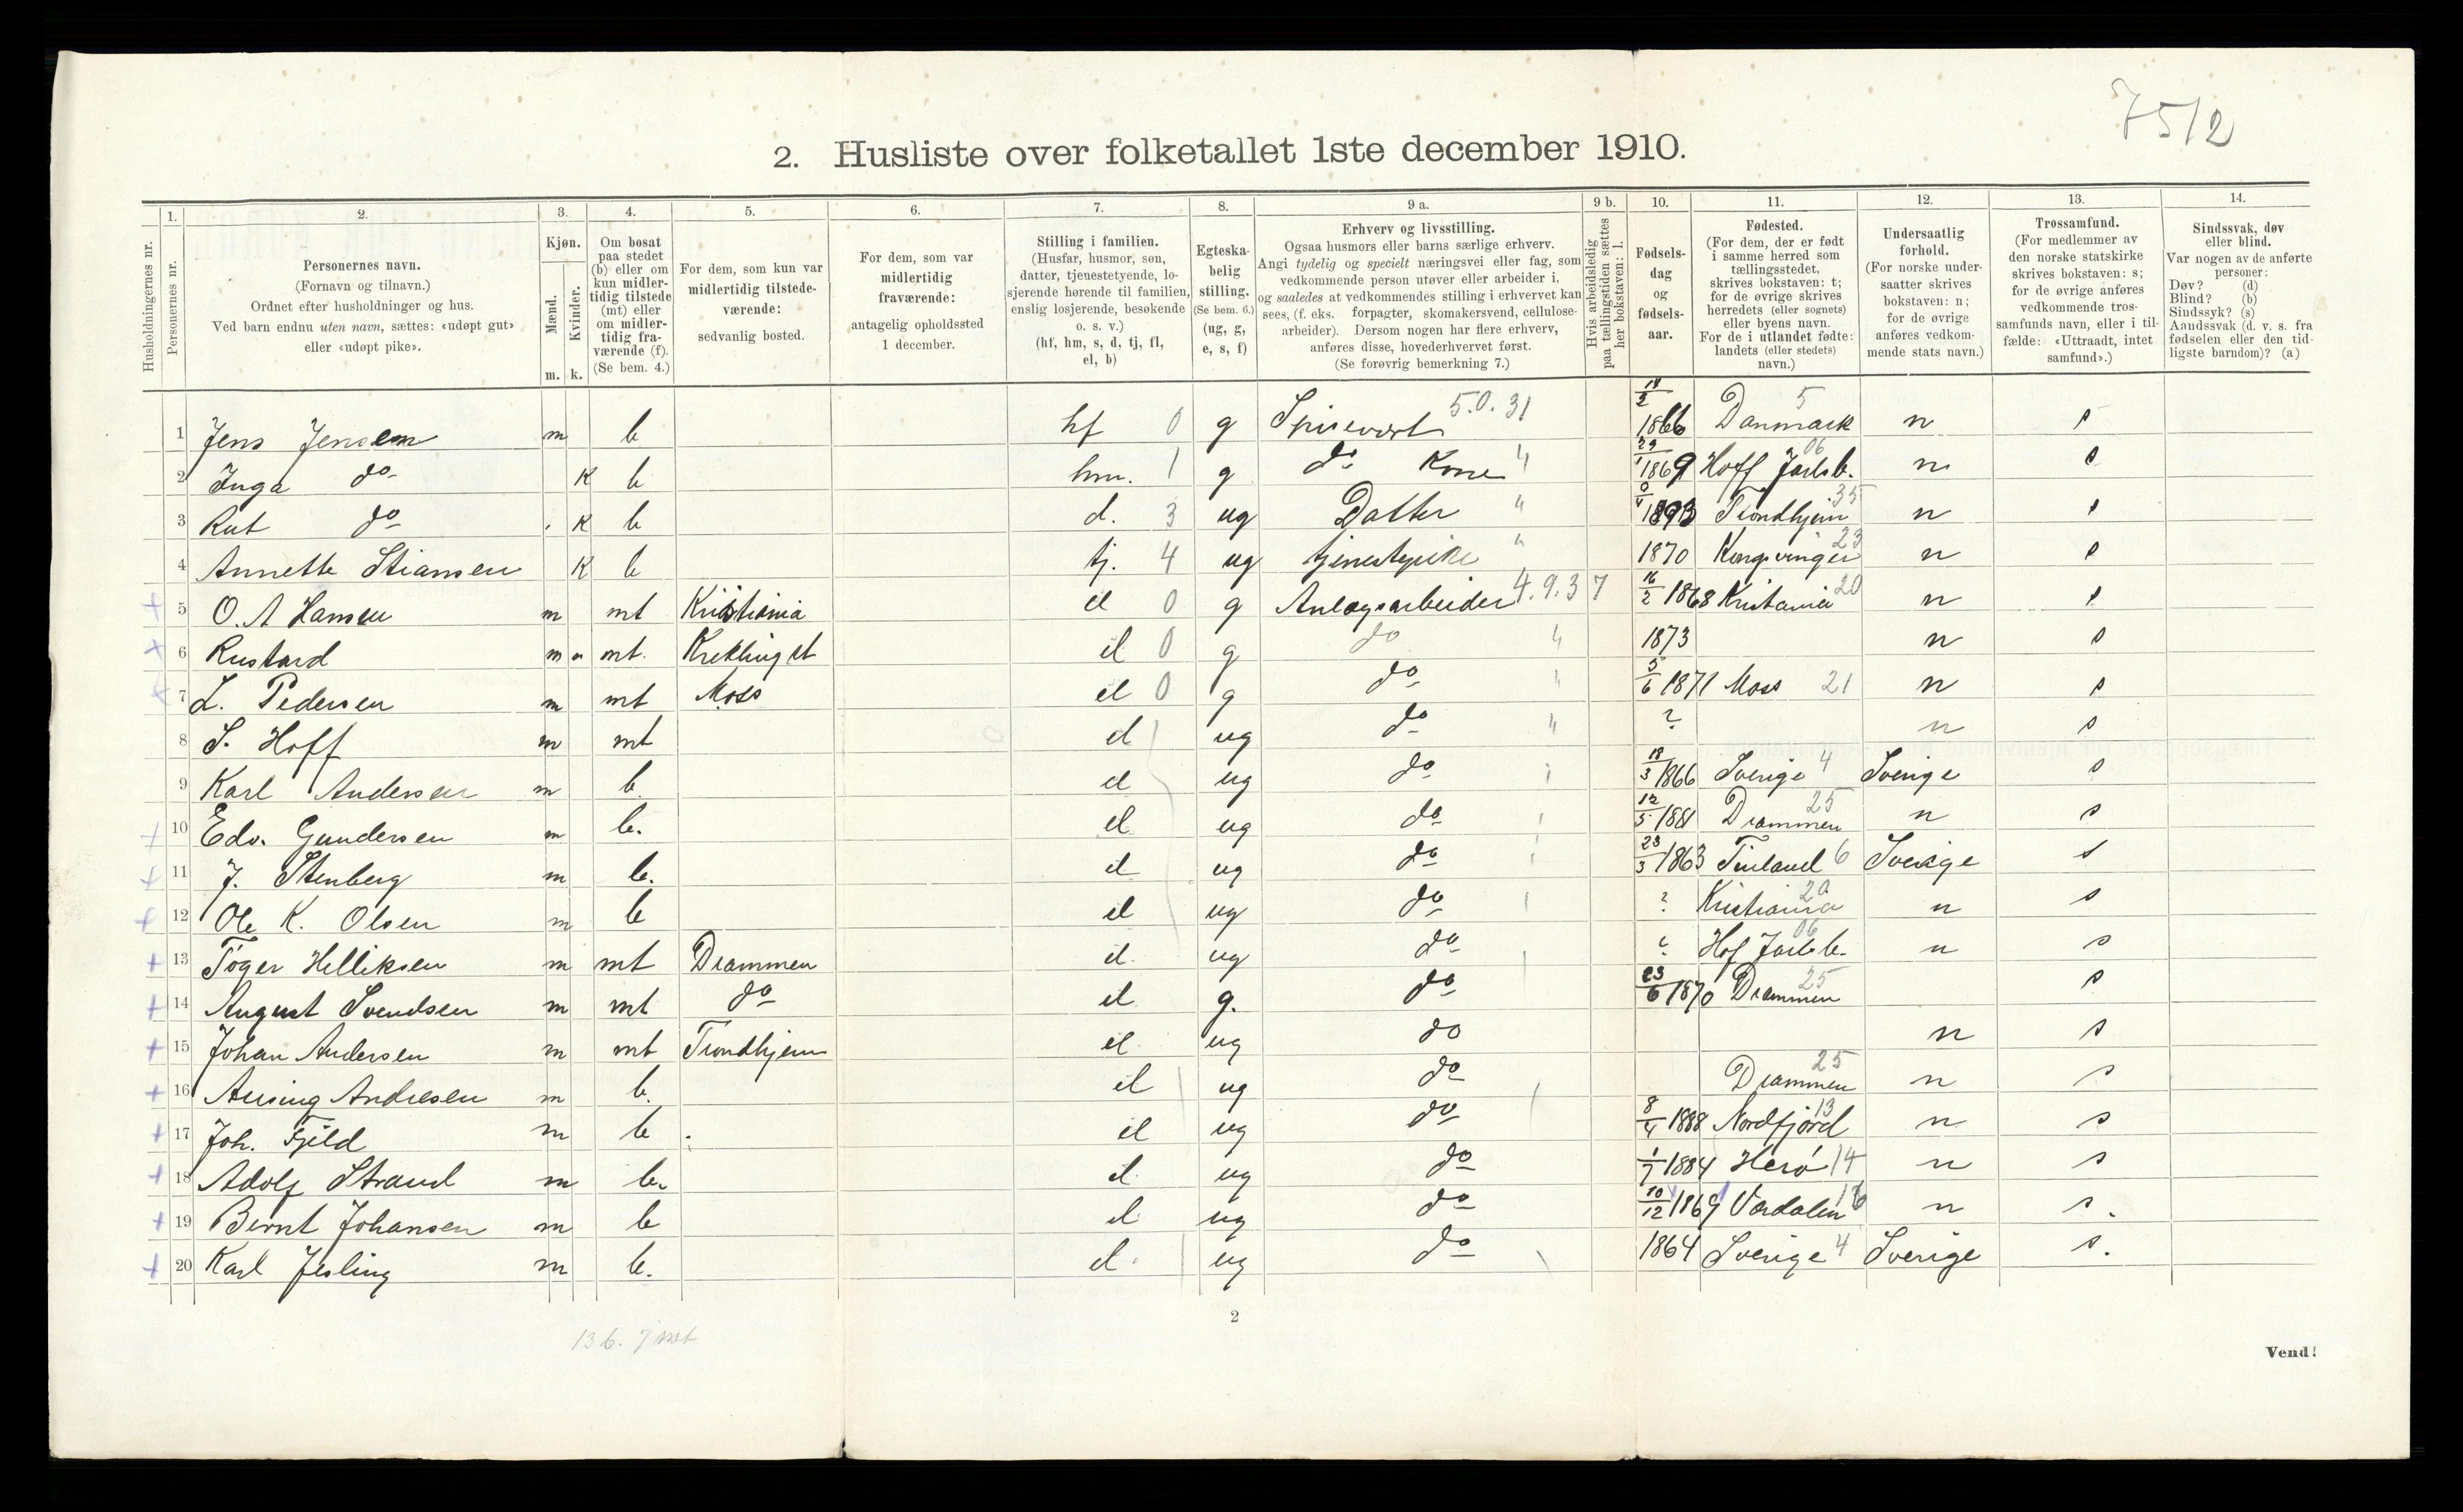 75/2
2. Husliste over folketallet 1ste december 1910.
Husholdningernes nr.
1.
Personernes nr.
2.
Personernes navn.
(Fornavn og tilnavn.)
Ordnet efter husholdninger og hus.
Ved barn endnu uten navn, sættes: «udøpt gut»
eller «udøpt pike».
3.
Kjøn.
Mænd.
Kvinder.
m. k.
4.
Om bosat
paa stedet
(b) eller om
kun midler-
tidig tilstede
(mt) eller
om midler-
tidig fra-
værende (f).
(Se bem. 4.)
5.
For dem, som kun var
midlertidig tilstede-
værende:
sedvanlig bosted.
6.
For dem, som var
midlertidig
fraværende:
antagelig opholdssted
1 december.
7.
Stilling i familien.
(Husfar, husmor, søn,
datter, tjenestetyende, lo-
sjerende hørende til familien,
enslig losjerende, besøkende
o. s. v.)
(hf, hm, s, d, tj, fl,
el, b)
8.
Egteska-
belig
stilling.
(Se bem. 6.)
(ug, g,
e, s, f)
9 a.
Erhverv og livsstilling.
Ogsaa husmors eller barns særlige erhverv.
Angi tydelig og specielt næringsvei eller fag, som
vedkommende person utøver eller arbeider i,
og saaledes at vedkommendes stilling i erhvervet kan
sees, (f. eks. forpagter, skomakersvend, cellulose-
arbeider). Dersom nogen har flere erhverv,
anføres disse, hovederhvervet først.
(Se forøvrig bemerkning 7.)
9 b.
Hvis arbeidsledig
paa tællingstiden sættes
her bokstaven: l.
10.
Fødsels-
dag
og
fødsels-
aar.
11.
Fødested.
(For dem, der er født
i samme herred som
tællingsstedet,
skrives bokstaven: t;
for de øvrige skrives
herredets (eller sognets)
eller byens navn.
For de i utlandet fødte:
landets (eller stedets)
navn.)
12.
Undersaatlig
forhold.
(For norske under-
saatter skrives
bokstaven: n;
for de øvrige
anføres vedkom-
mende stats navn.)
13.
Trossamfund.
(For medlemmer av
den norske statskirke
skrives bokstaven: s;
for de øvrige anføres
vedkommende tros-
samfunds navn, eller i til-
fælde: «Uttraadt, intet
samfund».)
14.
Sindssvak, døv
eller blind.
Var nogen av de anførte
personer:
Døv? (d)
Blind? (b)
Sindssyk? (s)
Aandssvak (d. v. s. fra
fødselen eller den tid-
ligste barndom)? (a)
1 Jens Jensen m b hf 0 g Spisevært 5.0.31 18/2 1866 Danmark 5 n s
2 Inga do k b hm. 1 g do Kone " 29/1 1869 Hoff Jarlsb. 06 n s
3 Rut do k b d. 3 ug Datter " 1893 Trondhjem 35 n s
4 Annette Stiansen k b tj. 4 ug tjenestepike " 1870 Kongsvinger 23 n s
5 O. A Hansen m mt Kristiania el 0 g Anlægsarbeider 4.9.37 16/2 1868 Kristania 20 n s
6 Rustard m mt. el 0 g do " 1873 n s
7 L. Pedersen m mt Moss el 0 g do " 5/6 1871 Moss 21 n s
8 S. Hoff m mt el ug do " ? n s
9 Karl Andersen m b. el ug do 18/3 1866 Sverige 4 Sverige s
10 Edv. Gundersen m b. el ug do 12/5 1881 Drammen 25 n s
11 J. Stenberg m b. el ug do 23/3 1863 Finland 6 Sverige s
12 Ole K. Olsen m b el ug do ? Kristiania 20 n s
13 Toger Helliksen m mt Drammen el ug do ? Hof Jarlsb. 06 n s
14 August Svendsen m mt do el g. do 23/6 1870 Drammen 25 s
15 Johan Andersen m mt Trondhjem el ug do n s
16 Andresen m b. el ug do Drammen 25 n s
17 Joh. Fjeld m b el ug do 8/4 1888 Nordfjord 13 n s
18 Adolf Strand m b. el ug do 1/7 1884 Herø 14 n s
19 Bernt Johansen m b el ug do 10/12 1869 Værdalen 16 n s.
20 Karl Jesling m b. el ug do 1864 Sverige 4 Sverige s.
2
13 b. 7 mt
Vend!